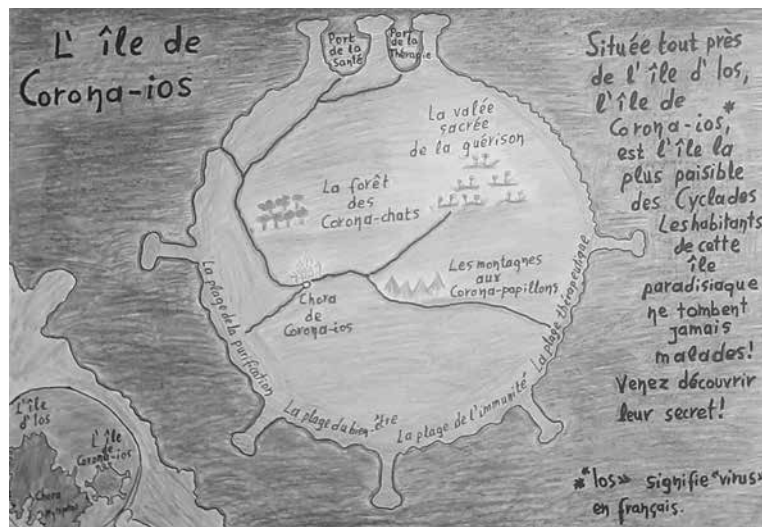 L' île de
Corona-ios
Port
de la
Santé
Port
de la
Thérapie
La valée
sacrée
de la guérison
La forêt
des
Corona-chats
Les montagnes
aux
Corona-papillons
Chora
de
Corona-ios
La plage de la purification
La plage du bien-être
La plage de l'immunité
La plage thérapeutique
L'île
d' Ios
L'île
de
Corona-ios
Chora
Située tout près
de l'île d' Ios,
l'île de
Corona-ios,*
est l'île la
plus paisible
des Cyclades
Les habitants
de cette
île
paradisiaque
ne tombent
jamais
malades!
Venez découvrir
leur secret!
*«Ios» signifie «virus»
en français.